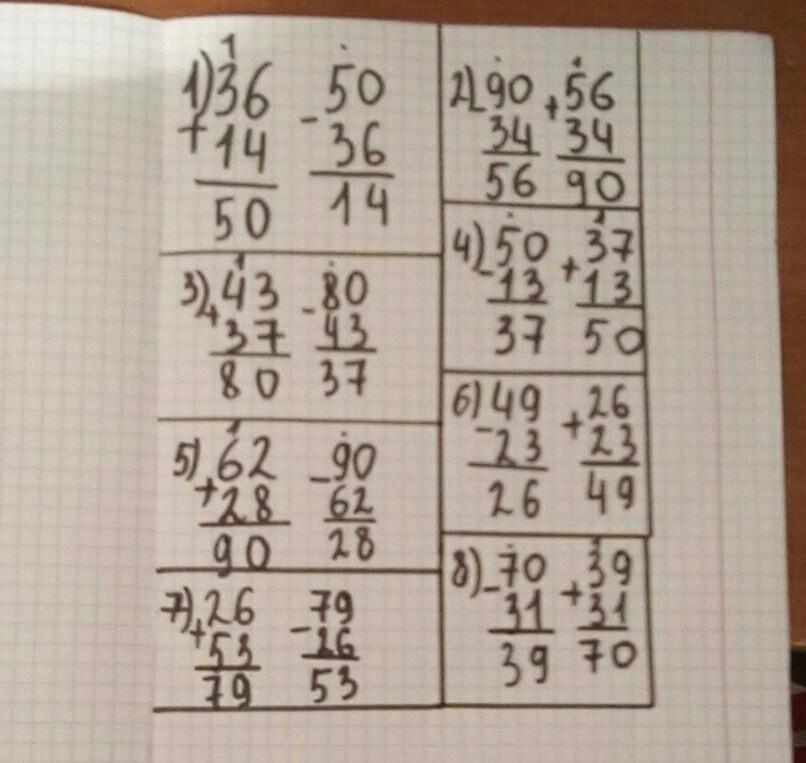 1) 36 + 14 = 50
50 - 36 = 14
2) 90 - 34 = 56
56 + 34 = 90
3) 43 + 37 = 80
80 - 43 = 37
4) 50 - 13 = 37
37 + 13 = 50
5) 62 + 28 = 90
90 - 62 = 28
6) 49 - 23 = 26
26 + 23 = 49
7) 26 + 53 = 79
79 - 26 = 53
8) 70 - 31 = 39
39 + 31 = 70